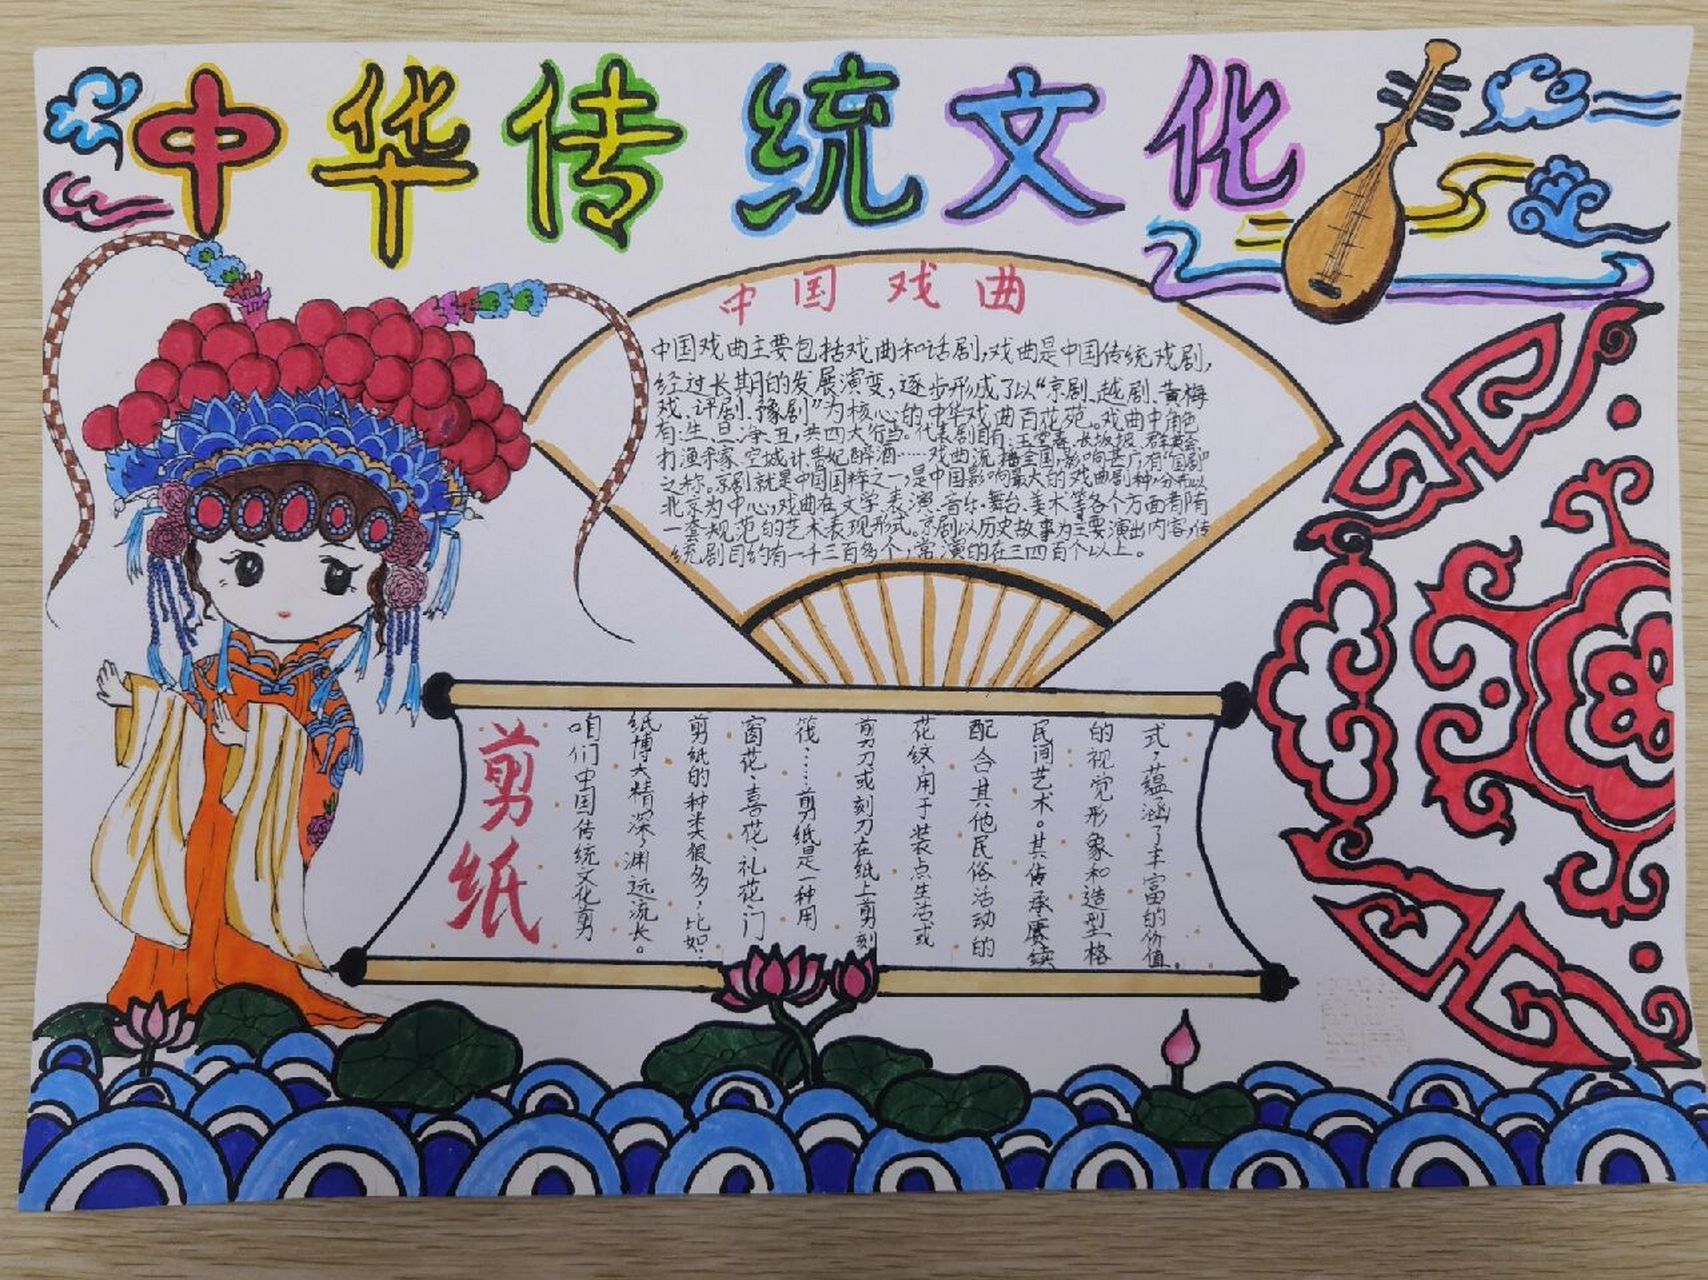 中华传统文化
中国戏曲
中国戏曲主要包括戏曲和话剧,戏曲是中国传统戏剧,
经过长期的发展演变,逐步形成了以“京剧、越剧、黄梅
戏、评剧、豫剧”为核心的中华戏曲百花苑。戏曲中角色
有:生、旦、净、丑,共四大行当。代表剧目有:玉堂春、长坂坡、群英会、
打渔杀家、空城计、贵妃醉酒……戏曲流播全国,影响甚广,有“国剧”
之称。京剧就是中国国粹之一,是中国影响最大的戏曲剧种,分布以
北京为中心,戏曲在文学、表演、音乐、舞台、美术等各个方面都有
一套规范的艺术表现形式。京剧以历史故事为主要演出内容,传
统剧目约有一千三百多个,常演的在三四百个以上。
剪纸
咱们中国传统文化剪
纸博大精深,渊远流长。
剪纸的种类很多,比如:
窗花、喜花、礼花、门
筏……剪纸是一种用
剪刀或刻刀在纸上剪刻
花纹,用于装点生活或
配合其他民俗活动的
民间艺术。其传承赓续
的视觉形象和造型格
式,蕴涵了丰富的价值。